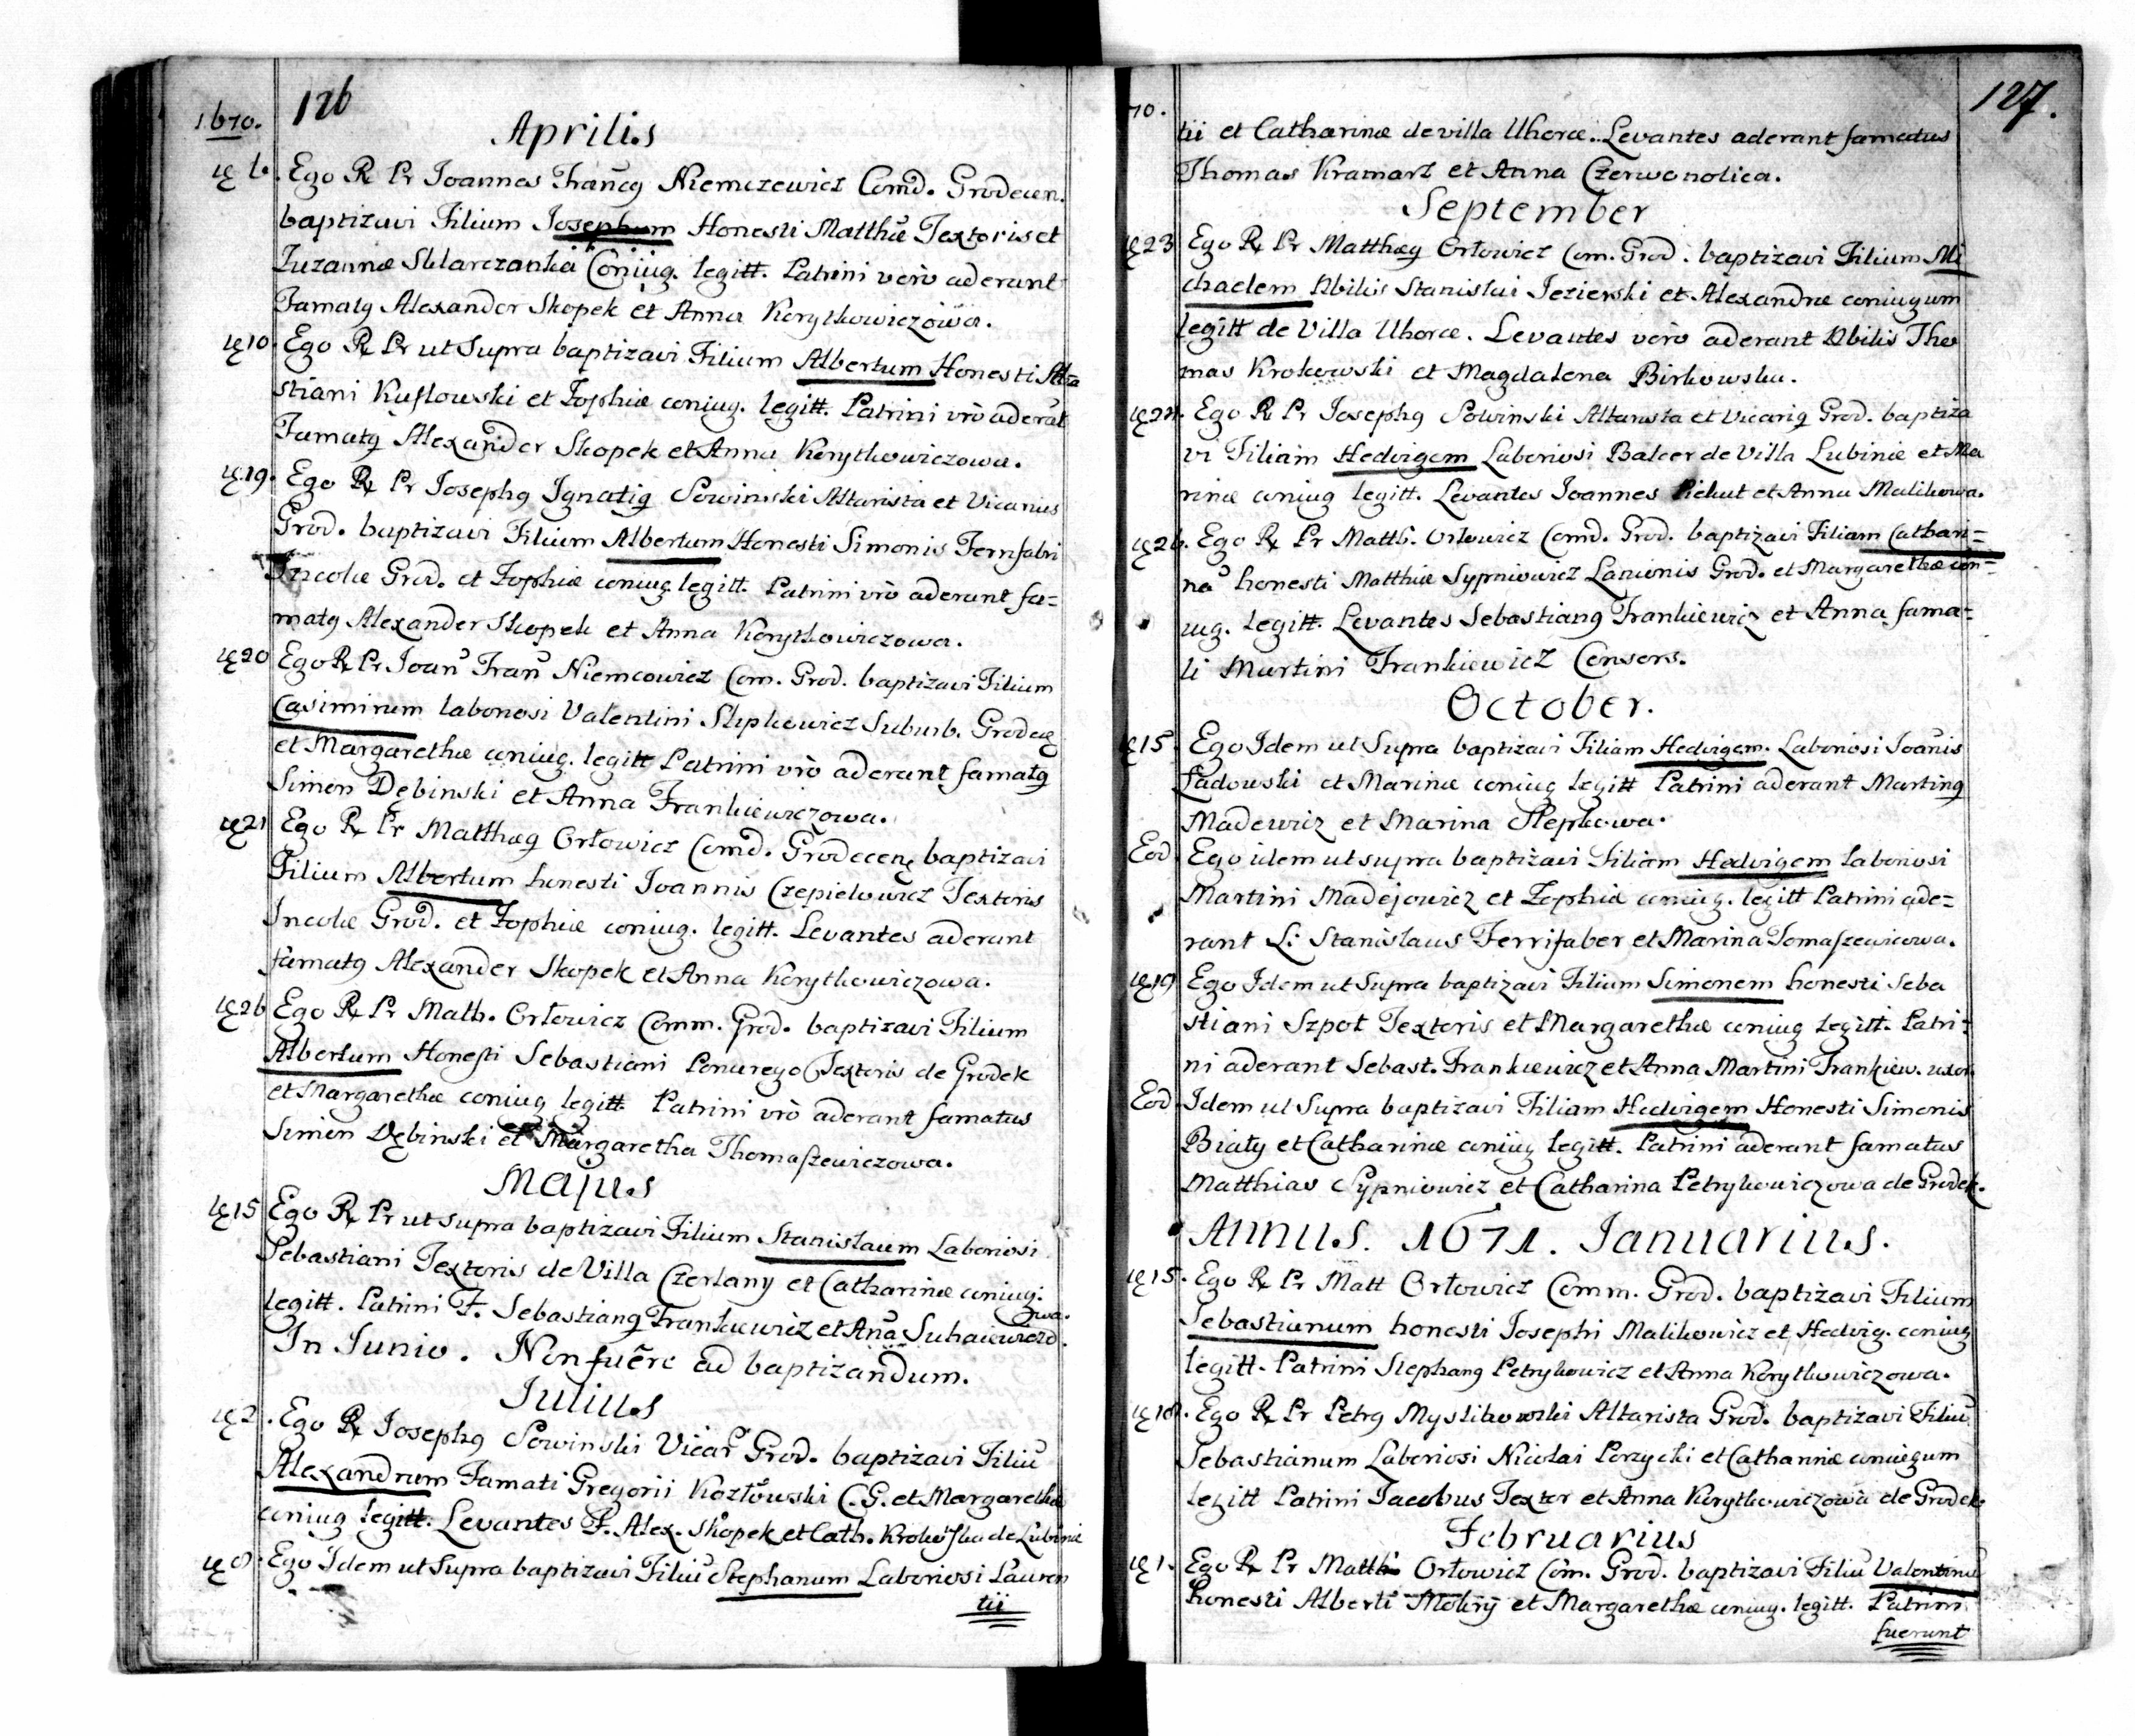 126
1670.
Aprilis
6. Ego R Pr Joannes Francq Niemczewicz Comd. Grodecen.
baptizavi Filium Josephum Honesti Matthiæ Textoris et
Zuzannæ Sklarczanka Coniug. legitt. Patrini verò aderant
Famatq Alexander Skopek et Anna Korytkowiczowa.
10. Ego R Pr ut Supra baptizavi Filium Albertum Honesti
stiani et Zophiæ coniug. legitt. Patrini vrò aderāt
Famatq Alexander Skopek et Anna Korytkowiczowa.
19. Ego R Pr Josephq Ignatiq Sowinski Altarista et Vicarius
Grod. baptizavi Filium Albertum Honesti Simonis Ferrifabri
Incolæ Grod. et Zophiæ coniug legitt. Patrini vrò aderant fa=
matq Alexander Skopek et Anna Korytkowiczowa.
20 Ego R Pr Joan Fran Niemcowicz Com. Grod. baptizavi Filium
Casimirum laboriosi Valentini Slipkowicz Suburb. Grodec
et Margarethæ coniug. legitt Patrini vrò aderant famatq
Simon Dębinski et Anna Frankiewiczowa.
21 Ego R Pr Matthæq Orłowicz Comd. Grodecenę baptizavi
Filium Albertum honesti Joannis Czepielowicz Textoris
Incolæ Grod. et Zophiæ coniug. legitt. Levantes aderant
famatq Alexander Skopek et Anna Korytkowiczowa.
26 Ego R Pr Math. Orłowicz Comm. Grod. baptizavi Filium
Albertum Honesti Sebastiani Ponurego Textoris de Grodek
et Margarethæ coniug legitt. Patrini vrò aderant famatus
Simon Dębinski et Margaretha Thomaszewiczowa.
Majus
15 Ego R Pr ut supra baptizavi Filium Stanislaum Laboriosi
Sebastiani Textoris de Villa Czerlany et Catharinæ coniug.
legitt. Patrini F. Sebastianq Frankiewicz et Aña Suhaiewiczo
wa.
In Junio. Non fuēre ad baptizandum.
Julius
2. Ego R Josephq Sowinski Vicar Grod. baptizavi Filiū
Alexandrum Famati Gregorii Kozłowski C.G. et Margarethæ
coniug legitt. Levantes F. Alex. Skopek et Cath. de Lubiniæ
8. Ego Idem ut Supra baptizavi Filiū Stephanum Laboriosi Lauren
tii
127.
70.
tii et Catharinæ de villa Uhorce. Levantes aderant famatus
Thomas Kramarz et Anna Czerwonolica.
September
23 Ego R Pr Matthæq Orłowicz Com. Grod. baptizavi Filium Mi
chaelem Nbilis Stanislai Jezierski et Alexandræ coniugum
legitt de Villa Uhorce. Levantes verò aderant Nbilis Tho
mas Krokowski et Magdalena Birkowska.
24. Ego R Pr Josephq Sowinski Altarista et Vicariq Grod. baptiza
vi Filiam Hedvigem Laboriosi Balcer de Villa Lubinie et Ma
rinæ coniug legitt. Levantes Joannes Piekut et Anna Malikowa.
26. Ego R Pr Matth. Orłowicz Comd. Grod. baptizavi Filiam Cathari=
na honesti Matthiæ Sypniowicz Lanionis Grod. et Margarethæ con=
iug. legitt. Levantes Sebastianq Frankiewicz et Anna fama=
ti Martini Frankiewicz Consors.
October.
15 Ego Idem ut Supra baptizavi Filiam Hedvigem. Laboriosi Joānis
Sadowski et Marinæ coniug legitt Patrini aderant Martinq
Madewicz et Marina Slepkowa.
Eod. Ego idem ut supra baptizavi Filiam Hedvigem laboriosi
Martini Madejowicz et Zophiæ coniug. legitt Patrini ade=
rant L: Stanislaus Ferrifaber et Marina Tomaszewicowa.
19 Ego Idem ut Supra baptizavi Filium Simonem honesti Seba
stiani Szpot Textoris et Margarethæ coniug legitt. Patri=
ni aderant Sebast. Frankiewicz et Anna Martini Frankiew. uxor.
Eod. Idem ut Supra baptizavi Filiam Hedvigem Honesti Simonis
Biały et Catharinæ coniug legitt. Patrini aderant famatus
Matthias Sypniowicz et Catharina Petrykowiczowa de Grodek.
Annus. 1671. Januarius.
15. Ego R Pr Matt Orłowicz Comm. Grod. baptizavi Filium
Sebastianum honesti Josephi Malikowicz et Hedvig. coniug
legitt. Patrini Stephanq Petrykowicz et Anna Korytkowiczowa.
18. Ego R Pr Petrq Myslikowski Altarista Grod. baptizavi Filiū
Sebastianum Laboriosi Nicolai Porzycki et Catharinæ coniugum
legitt Patrini Jacobus Textor et Anna Korytkowiczowa de Grodek
Februarius
1. Ego R Pr Matth Orłowicz Com. Grod. baptizavi Filiū Valentinū
honesti Alberti Mokry et Margarethæ coniug. legitt. Patrini
fuerunt